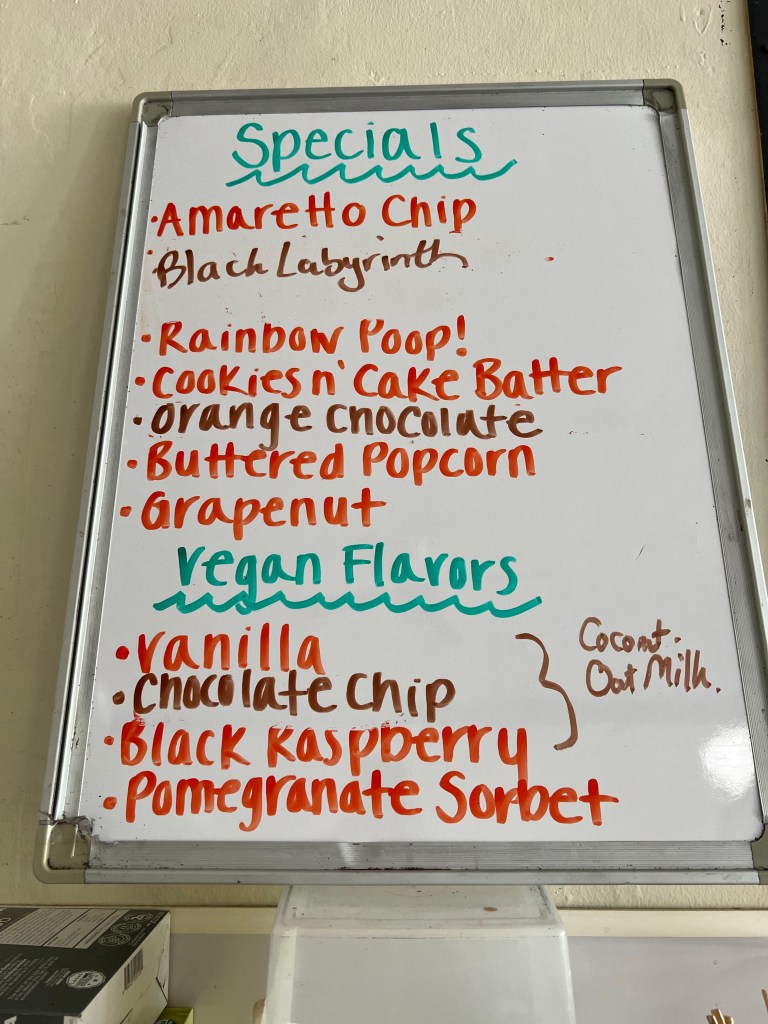 Specials
·Amaretto Chip
·Black Labyrinth
·Rainbow Poop!
·Cookies n' Cake Batter
·Orange Chocolate
·Buttered Popcorn
·Grapenut
Vegan Flavors
·Vanilla
·Chocolate Chip
·Black Raspberry
·Pomegranate Sorbet
Oat Milk.